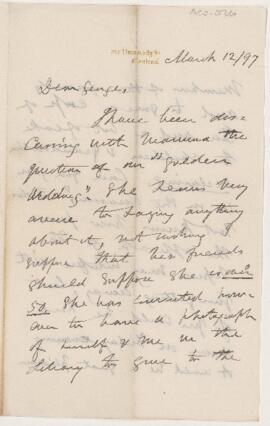 Acc-1526
University St
Montreal
March 12/97
Dear George,
I have been dis-
cussing with Mamma the
question of our "golden
wedding". She seems very
averse to saying anything
about it, not wishing I
suppose that her friends
should suppose she is over
50. She has consented how-
ever to have a photograph
of herself & me in the
library to give to the